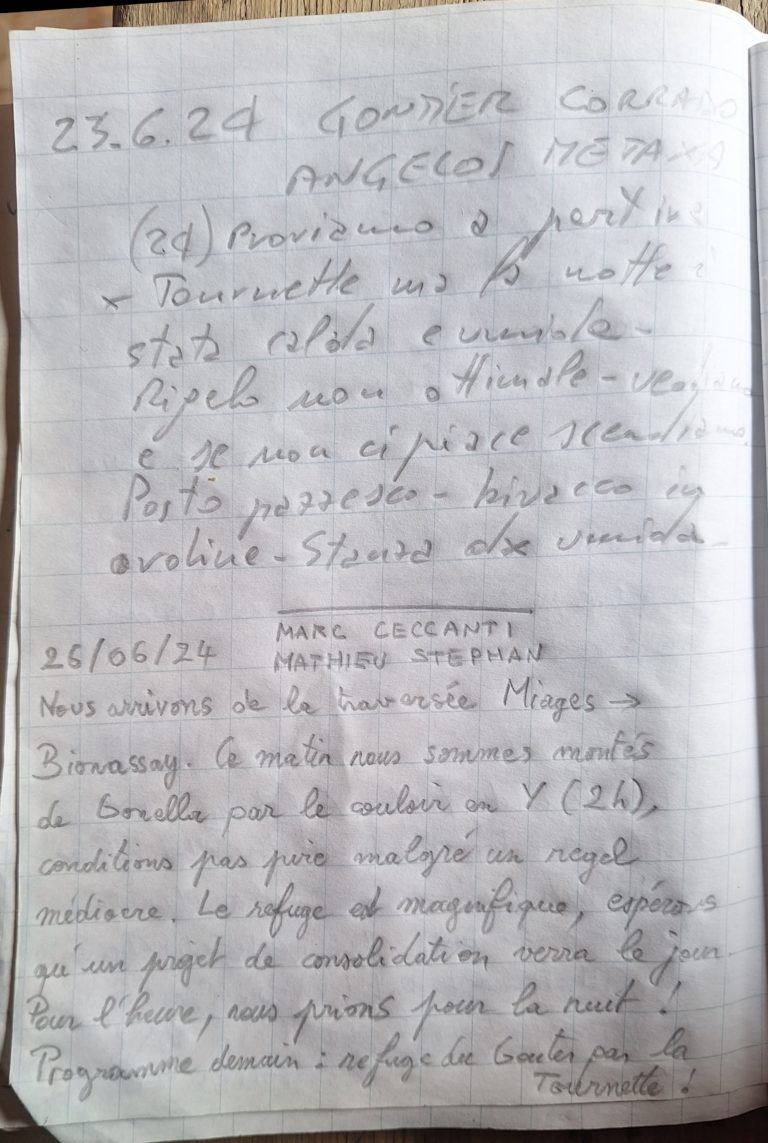 23.6.24 GONTIER CORRADO
ANGELOS METAXA
(24) Proviamo a partire
x Tournette ma la notte è
stata calda e umida -
Rigelo non ottimale - vediamo
e se non ci piace scendiamo.
Posto pazzesco - bivacco in
- Stanza dx umida -
MARC CECCANTI
26/06/24 MATHIEU STEPHAN
Nous arrivons de la traversée Miages →
Bionassay. Ce matin nous sommes montés
de Gonella par le couloir en Y (2h),
conditions pas pire malgré un regel
médiocre. Le refuge est magnifique, espérons
qu'un projet de consolidation verra le jour.
Pour l'heure, nous prions pour la nuit !
Programme demain : refuge du Gouter par la
Tournette !